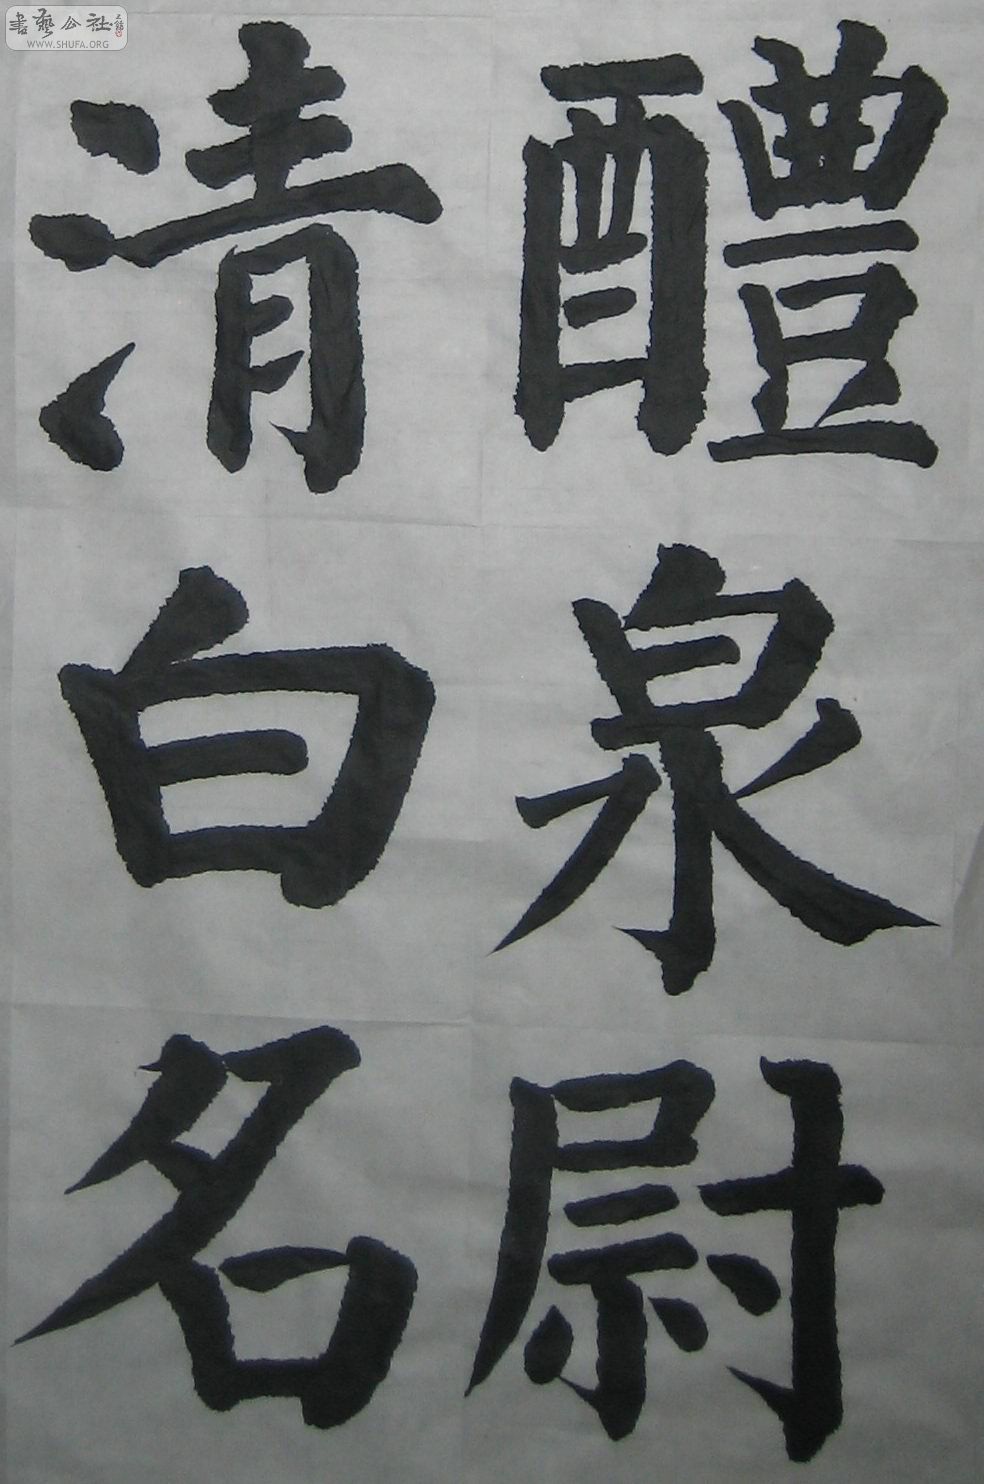 醴泉尉
清白名
書藝公社
WWW.SHUFA.ORG